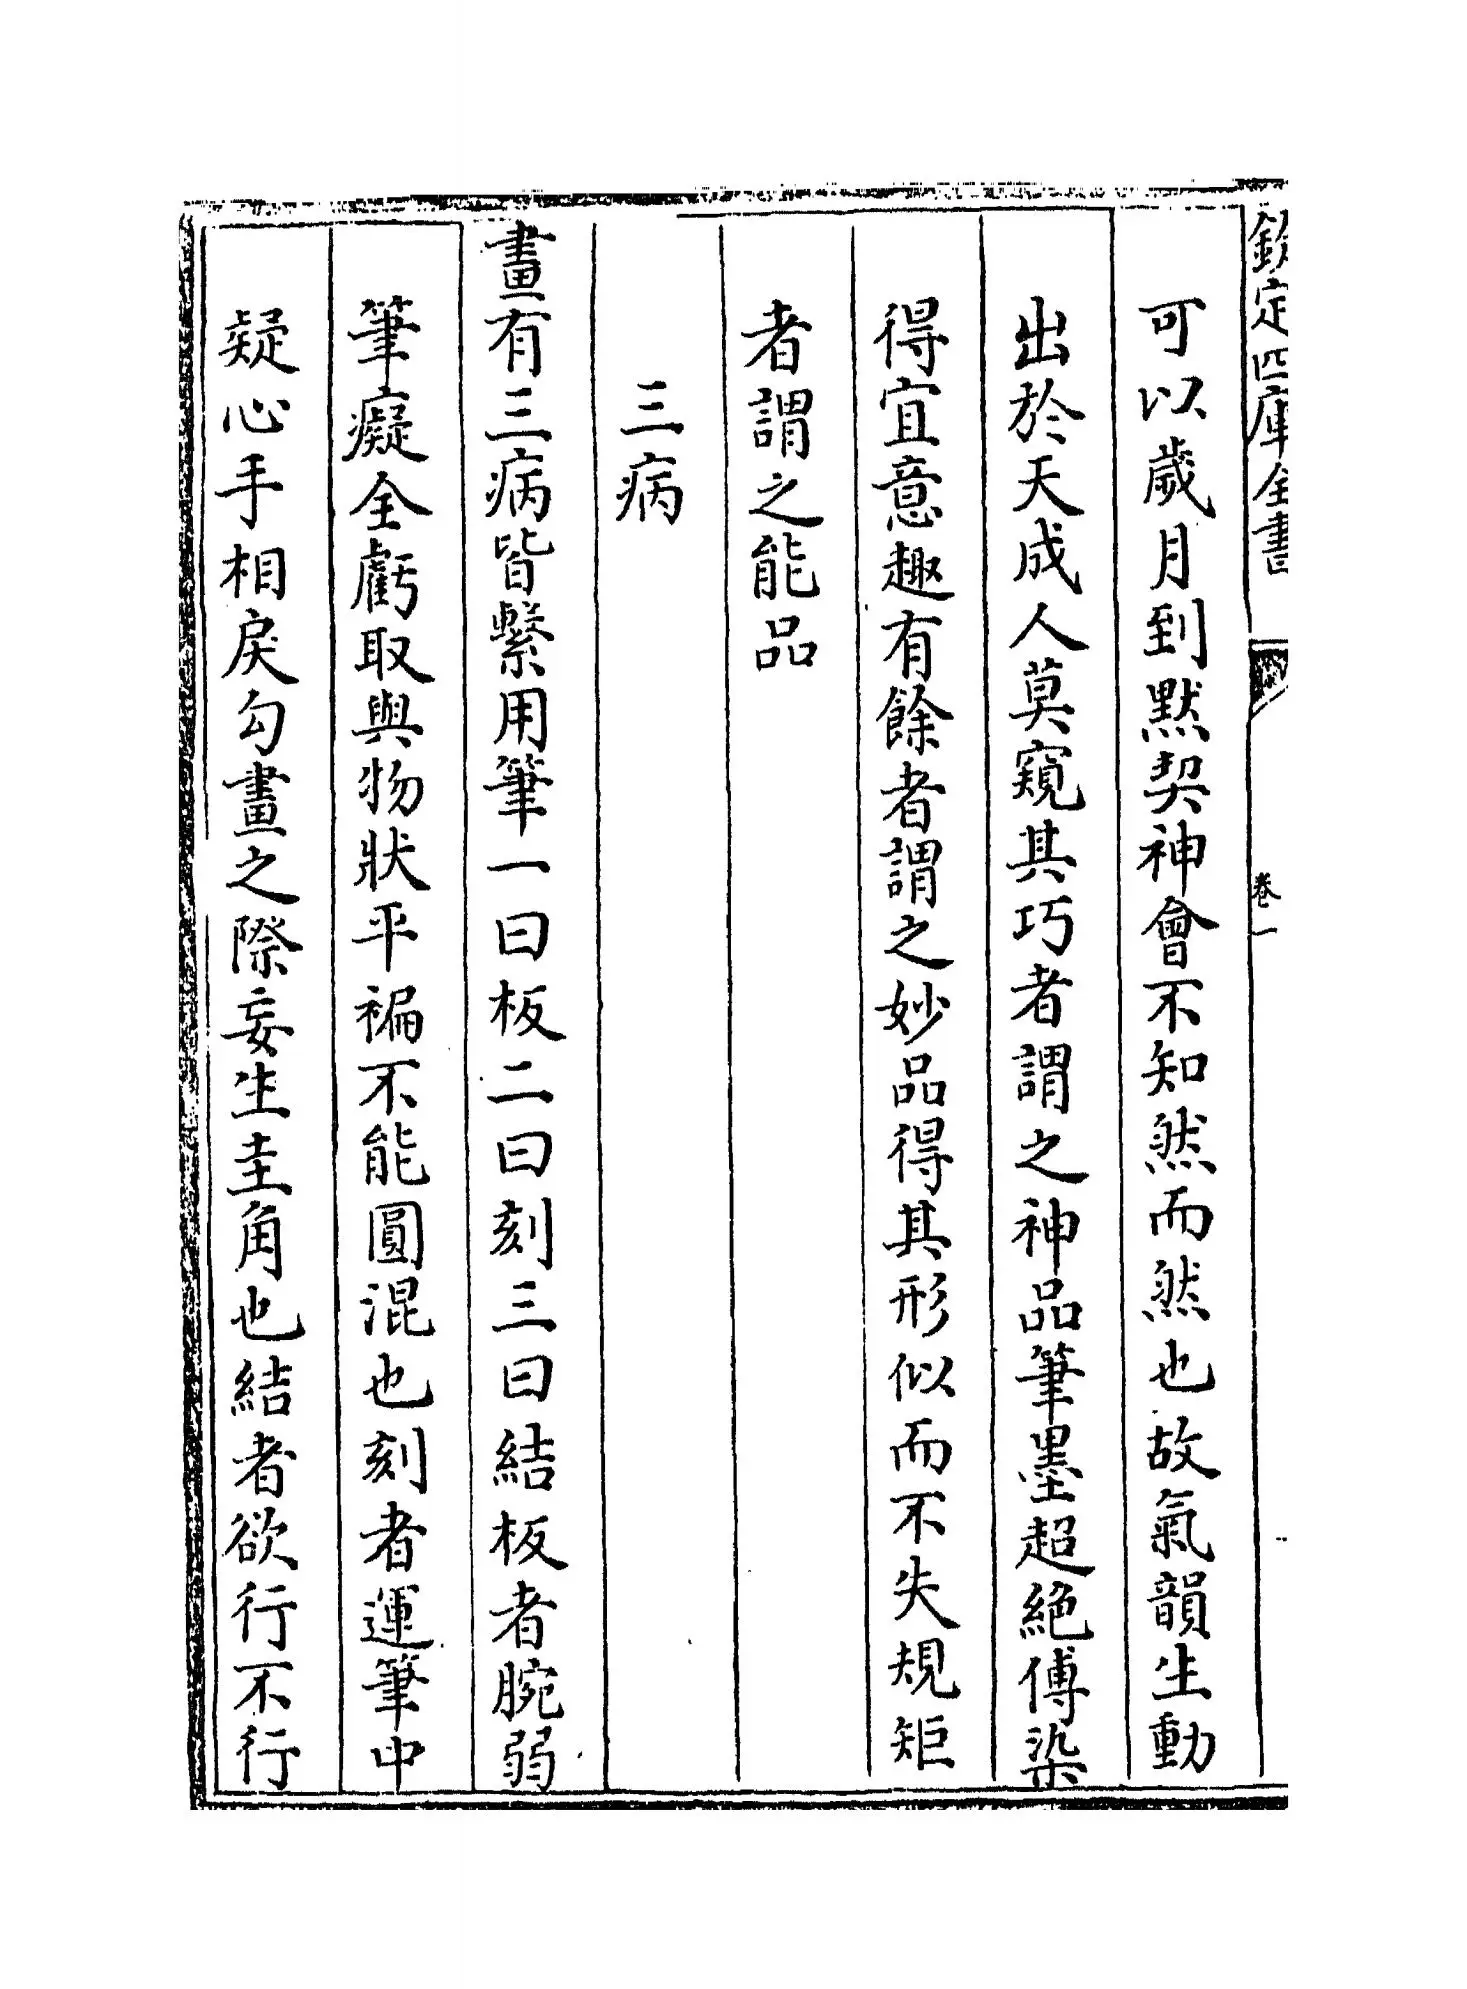 欽定四庫全書
卷一
可以歲月到默契神會不知然而然也故氣韻生動
出於天成人莫窺其巧者謂之神品筆墨超絶傅染
得宜意趣有餘者謂之妙品得其形似而不失規矩
者謂之能品
三病
畫有三病皆繫用筆一曰板二曰刻三曰結板者腕弱
筆癡全虧取與物狀平褊不能圓混也刻者運筆中
疑心手相戾勾畫之際妄生圭角也結者欲行不行